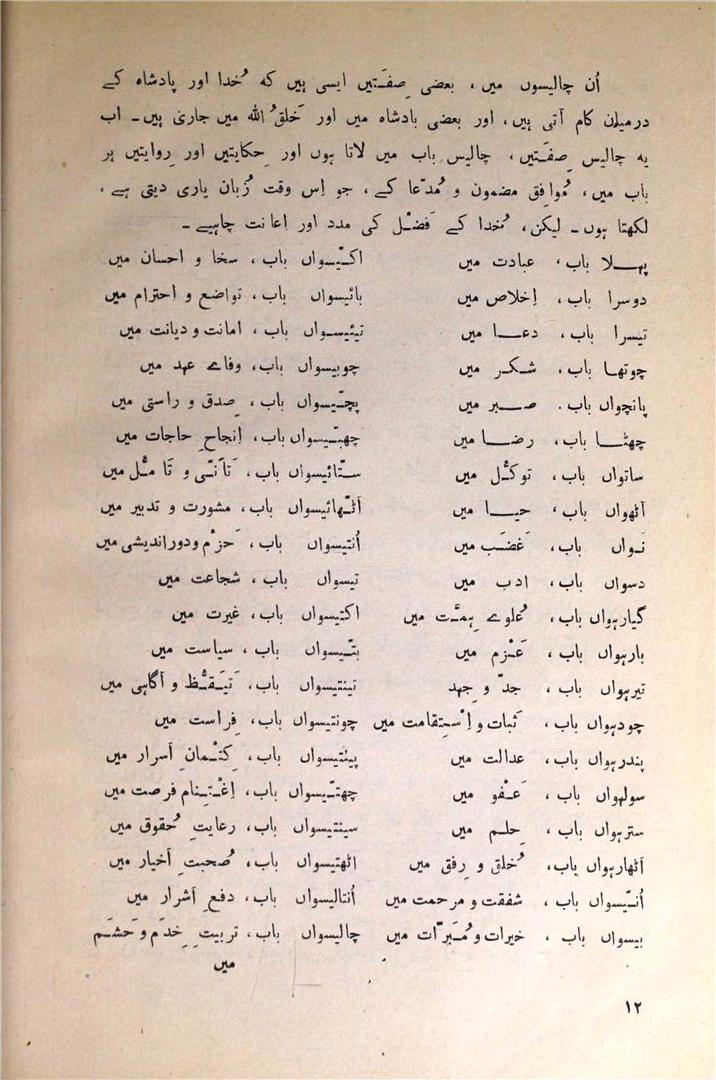 اُن چالیسوں میں، بعضی صِفَتیں ایسی ہیں کہ خُدا اور پادشاہ کے
درمیان کام آتی ہیں، اور بعضی بادشاہ میں اور خَلقُ اللہ میں جاری ہیں۔ اب
یہ چالیس صِفَتیں، چالیس باب میں لاتا ہوں اور حِکایتیں اور رِوایتیں ہر
باب میں، مُوافِق مضمون و مُدّعا کے، جو اِس وقت زُبان یاری دیتی ہے،
لکھتا ہوں۔ لیکن، خُدا کے فَضْل کی مدد اور اِعانت چاہیے۔
پہلا باب، عبادت میں
دوسرا باب، اِخلاص میں
تیسرا باب، دعا میں
چوتھا باب، شکر میں
پانچواں باب، صبر میں
چھٹا باب، رضا میں
ساتواں باب، توکُّل میں
آٹھواں باب، حیا میں
نَواں باب، غَضَب میں
دسواں باب، ادب میں
گیارہواں باب، عُلوے ہِمَّت میں
بارہواں باب، عَزْم میں
تیرہواں باب، جدّ و جہد
چودہواں باب، ثَبات و اِسْتِقامت میں
پندرہواں باب، عدالت میں
سولہواں باب، عَفْو میں
سترہواں باب، حِلم میں
اٹھارہواں باب، خُلق و رِفق میں
اُنّیسواں باب، شفقت و مرحمت میں
بیسواں باب، خیرات و مُبَرّات میں
اکّیسواں باب، سخا و احسان میں
بائیسواں باب، تواضع و احترام میں
تیئیسواں باب، امانت و دیانت میں
چوبیسواں باب، وفاے عہد میں
پچّیسواں باب، صِدق و راستی میں
چھبّیسواں باب، اِنجاحِ حاجات میں
ستّائیسواں باب، تَاَنّی و تَامُّل میں
اٹّھائیسواں باب، مشورت و تدبیر میں
اُنتیسواں باب، حَزْم و دوراندیشی میں
تیسواں باب، شجاعت میں
اکتیسواں باب، غیرت میں
بتّیسواں باب، سیاست میں
تینتیسواں باب، تَیَقُّظ و آگاہی میں
چونتیسواں باب، فِراست میں
پینتیسواں باب، کِتْمانِ اَسرار میں
چھتّیسواں باب، اِغْتِنام فرصت میں
سینتیسواں باب، رعایتِ حُقوق میں
اٹھتیسواں باب، صُحبتِ اَخیار میں
اُنتالیسواں باب، دفعِ اَشرار میں
چالیسواں باب، تربیتِ خدَم و حَشَم
میں
۱۲